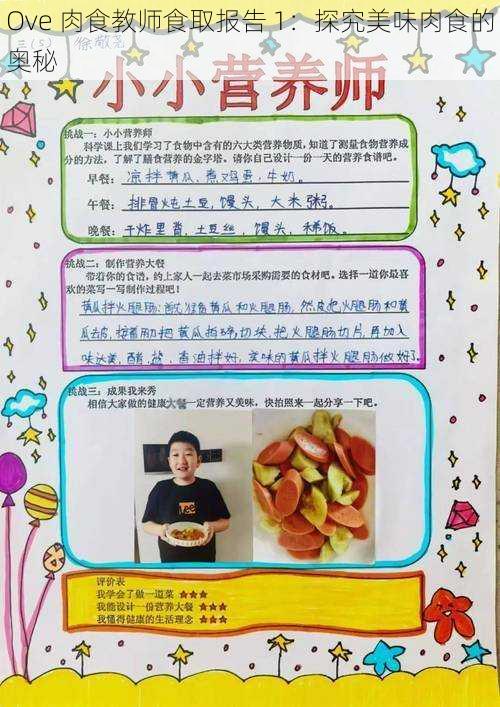 Ove 肉食教师食取报告 1：探究美味肉食的
奥秘
三(5) 徐敬尧
小小营养师
挑战一：小小营养师
科学课上我们学习了食物中含有的六大类营养物质，知道了测量食物营养成
分的方法，了解了膳食营养的金字塔。请你自己设计一份一天的营养食谱吧。
早餐：凉拌黄瓜、煮鸡蛋，牛奶。
午餐：排骨炖土豆，馒头，大米粥。
晚餐：干炸里脊，土豆丝，馒头，稀饭。
挑战二：制作营养大餐
带着你的食谱，约上家人一起去菜市场采购需要的食材吧。选择一道你最喜
欢的菜写一写制作过程吧！
黄瓜拌火腿肠：黄瓜和火腿肠，然后把火腿肠和黄
瓜去皮，接着把黄瓜拍碎切块，把火腿肠切片，再加入
味达美，醋，盐，香油拌好，美味的黄瓜拌火腿肠做好了。
挑战三：成果我来秀
相信大家做的健康大餐一定营养又美味，快拍照来一起分享一下吧。
评价表
我学会了做一道菜 ★★★
我能设计一份营养大餐 ★★★
我懂得健康的生活理念 ★★★